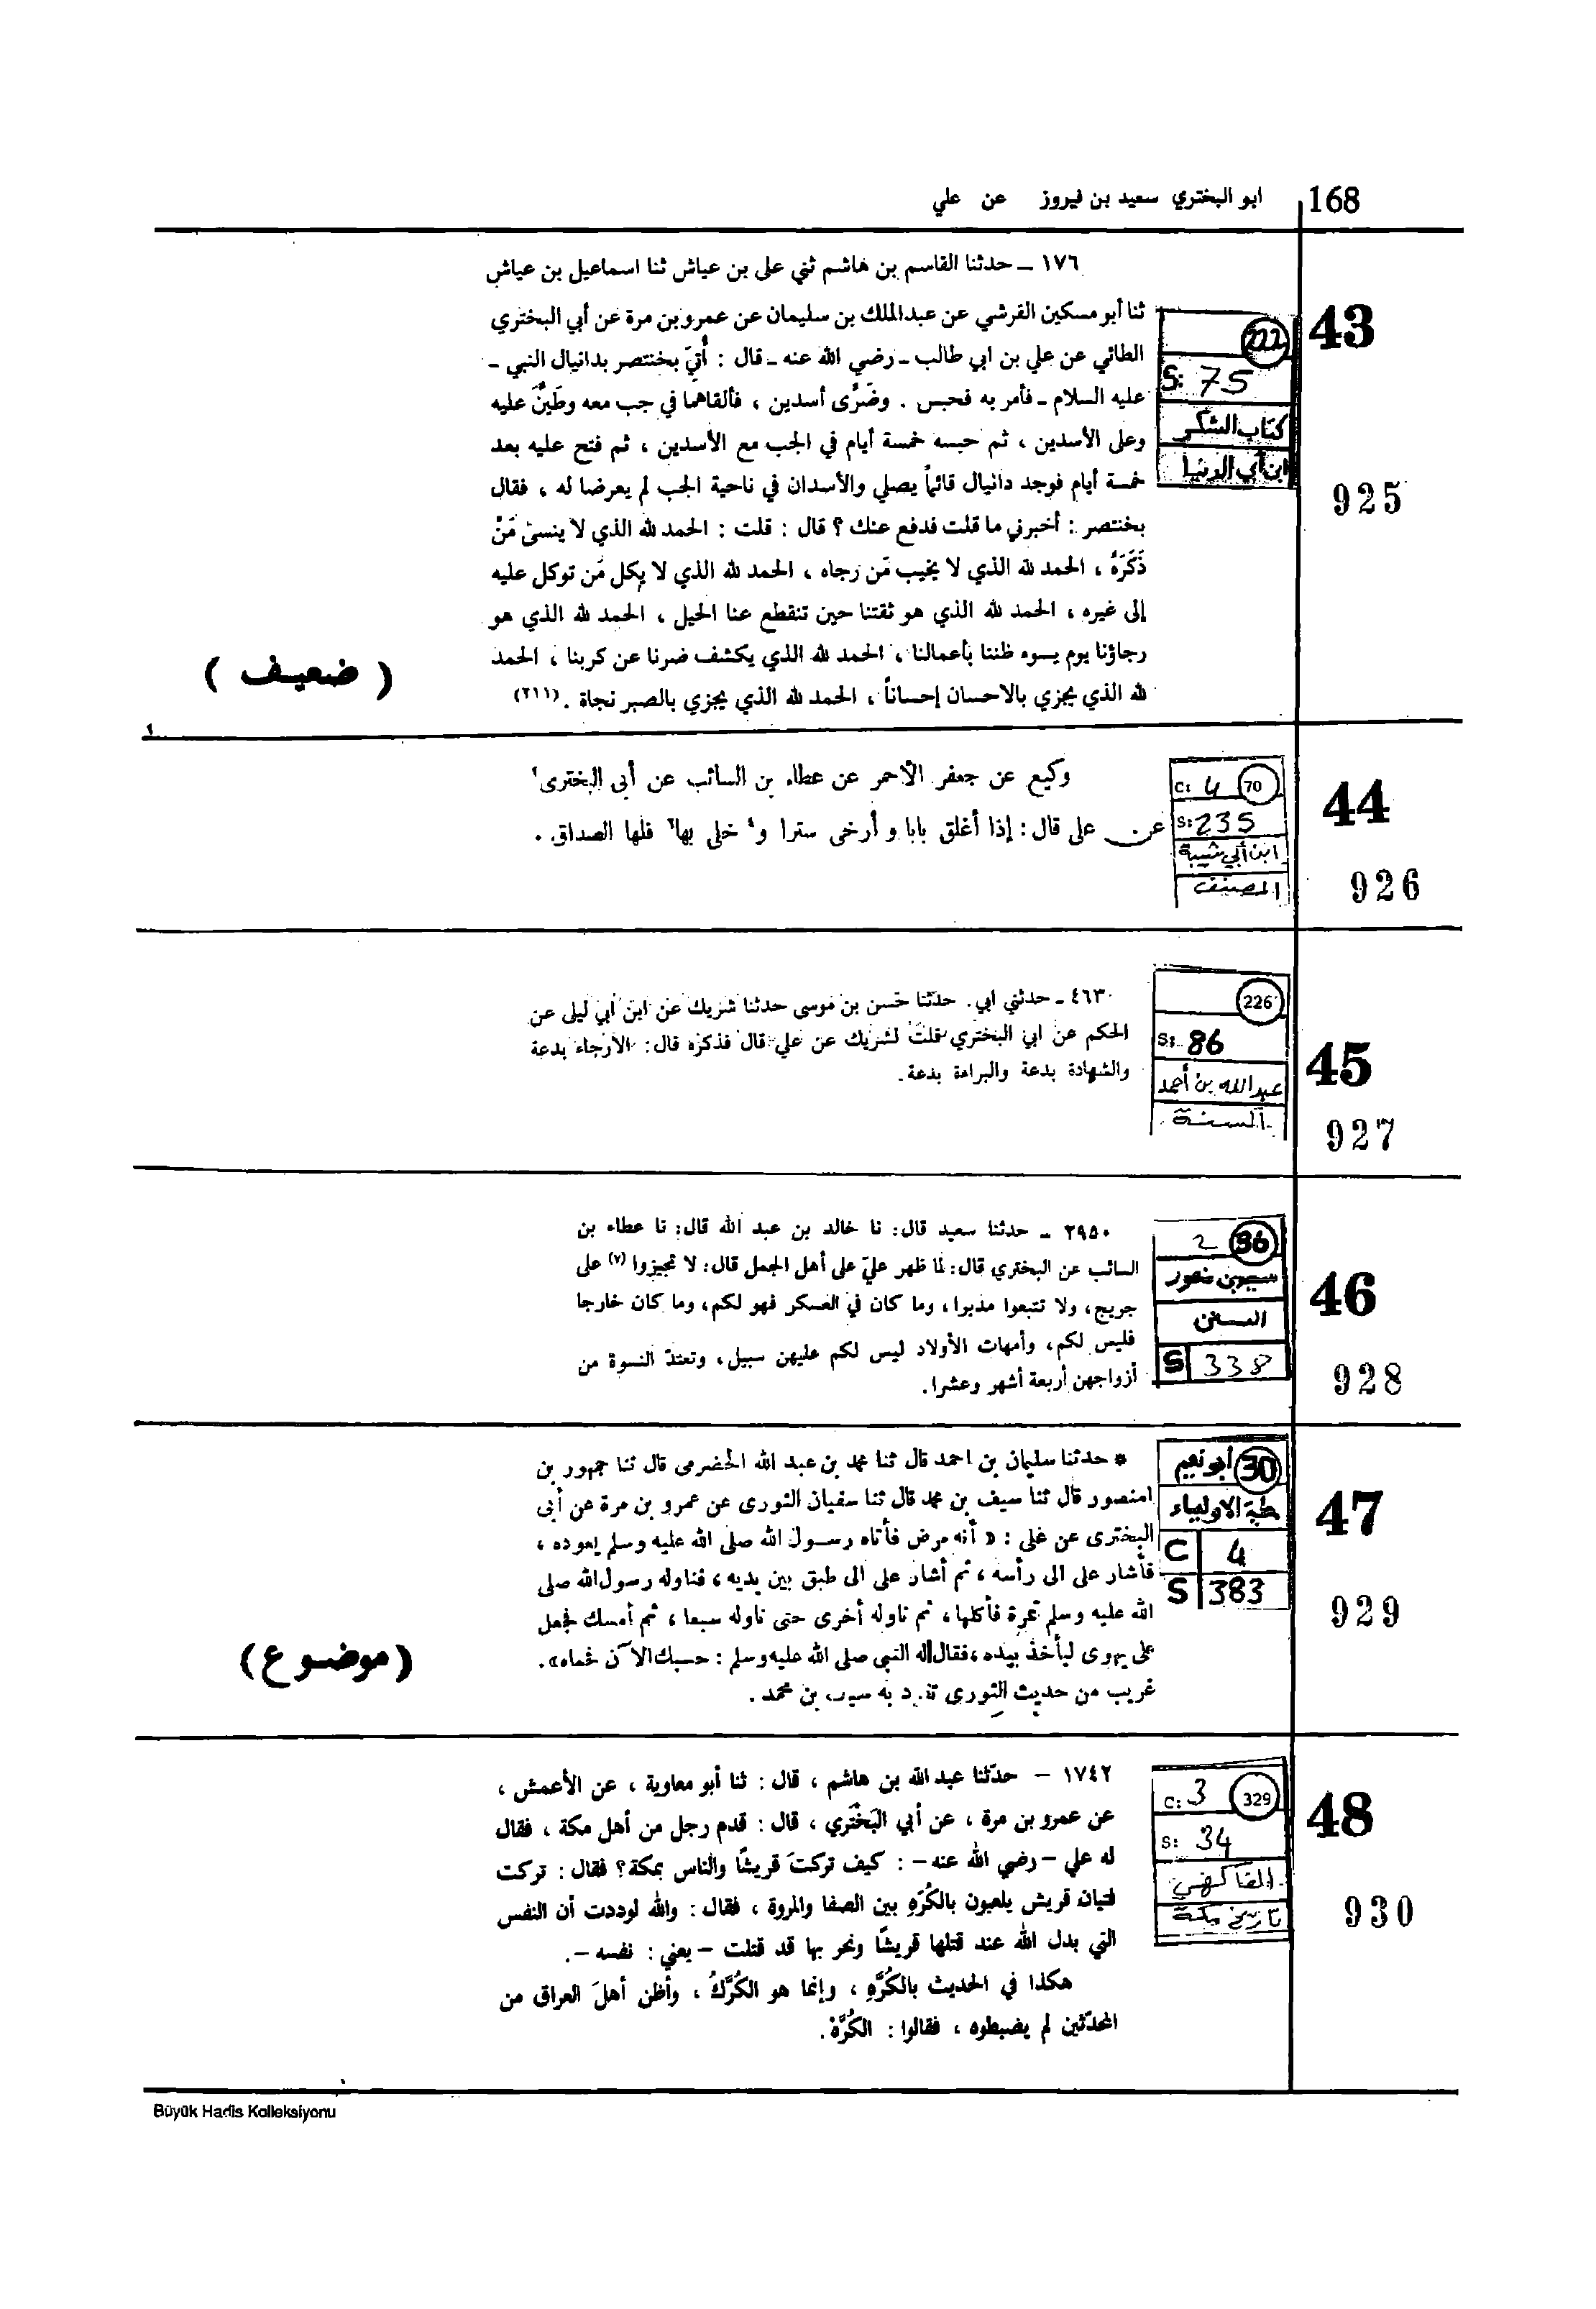 168
ابو البختري سعيد بن فيروز عن علي
43
925
222
S: 75
كتاب الشكر
ابن أبي الدنيا
١٧٦ ـ حدثنا القاسم بن هاشم ثني علي بن عياش ثنا اسماعيل بن عياش
ثنا أبو مسكين القرشي عن عبدالملك بن سليمان عن عمرو بن مرة عن أبي البختري
الطائي عن علي بن ابي طالب ـ رضي الله عنه ـ قال : أُتيَ بختنصر بدانيال النبي ـ
عليه السلام ـ فأمر به فحبس . وضَرَّى أسدين ، فألقاهما في جب معه وطَيَّنَ عليه
وعلى الأسدين ، ثم حبسه خمسة أيام في الجب مع الأسدين ، ثم فتح عليه بعد
خمسة أيام فوجد دانيال قائماً يصلي والأسدان في ناحية الجب لم يعرضا له ، فقال
بختنصر : أخبرني ما قلت فدفع عنك ؟ قال : قلت : الحمد لله الذي لا ينسى مَنْ
ذَكَرَهُ ، الحمد لله الذي لا يخيب مَن رجاه ، الحمد لله الذي لا يكل مَن توكل عليه
إلى غيره ، الحمد لله الذي هو ثقتنا حين تنقطع عنا الحيل ، الحمد لله الذي هو
رجاؤنا يوم يسوء ظننا بأعمالنا ، الحمد لله الذي يكشف ضرنا عن كربنا ، الحمد
لله الذي يجزي بالاحسان إحساناً ، الحمد لله الذي يجزي بالصبر نجاة . (٢١١)
( ضعيف )
44
926
C: 4 70
S: 235
ابن أبي شيبة
المصنف
وكيع عن جعفر الأحمر عن عطاء بن السائب عن أبي البختري
عن على قال : إذا أغلق بابا و أرخى سترا و خلى بها فلها الصداق .
45
927
226
S: 86
عبدالله بن أحمد
السنة
٤٦٣ ـ حدثني ابي. حدثنا حسن بن موسى حدثنا شريك عن ابن أبي ليلى عن
الحكم عن ابي البختري قلت لشريك عن علي قال فذكره قال: الارجاء بدعة
والشهادة بدعة والبراءة بدعة.
46
928
2 96
سعيد بن منصور
السنن
S 338
٢٩٥٠ ـ حدثنا سعيد قال: نا خالد بن عبد الله قال: نا عطاء بن
السائب عن البختري قال: لما ظهر عليّ على أهل الجمل قال: لا تجيزوا (٧) على
جريج، ولا تتبعوا مدبوا، وما كان في العسكر فهو لكم، وما كان خارجا
فليس لكم، وأمهات الأولاد ليس لكم عليهن سبيل، وتعتدّ النسوة من
أزواجهن أربعة أشهر وعشرا.
47
929
أبو نعيم 30
حلية الاولياء
C 4
S 383
* حدثنا سليمان بن احمد قال ثنا محمد بن عبد الله الحضرمى قال ثنا جمهور بن
منصور قال ثنا سيف بن محمد قال ثنا سفيان الثورى عن عمرو بن مرة عن أبى
البخترى عن على : « أنه مرض فأتاه رسول الله صلى الله عليه وسلم يعوده ،
فأشار على الى رأسه ، ثم أشار على الى طبق بين يديه ، فناوله رسول الله صلى
الله عليه وسلم تمرة فأكلها ، ثم ناوله أخرى حتى ناوله سبعا ، ثم أمسك فجعل
على يهوى ليأخذ بيده ، فقال له النبى صلى الله عليه وسلم : حسبك الآن خماه» .
غريب من حديث الثورى تفرد به سيف بن محمد .
(موضوع)
48
930
C: 3 329
S: 34
الفاكهي
تاريخ مكة
١٧٤٢ – حدّثنا عبد الله بن هاشم ، قال : ثنا أبو معاوية ، عن الأعمش ،
عن عمرو بن مرة ، عن أبي البَخْتَري ، قال : قدم رجل من أهل مكة ، فقال
له علي – رضي الله عنه – : كيف تركتَ قريشًا والناس بمكة؟ فقال : تركت
فتيان قريش يلعبون بالكُرَهِ بين الصفا والمروة ، فقال : والله لوددت أن النفس
التي بدل الله عند قتلها قريشًا ونحر بها قد قتلت – يعني : نفسه –.
هكذا في الحديث بالكُرَّهِ ، وإنما هو الكُرَّكُ ، وأظن أهلَ العراق من
المحدّثين لم يضبطوه ، فقالوا : الكُرَّة.
Büyük Hadis Kolleksiyonu